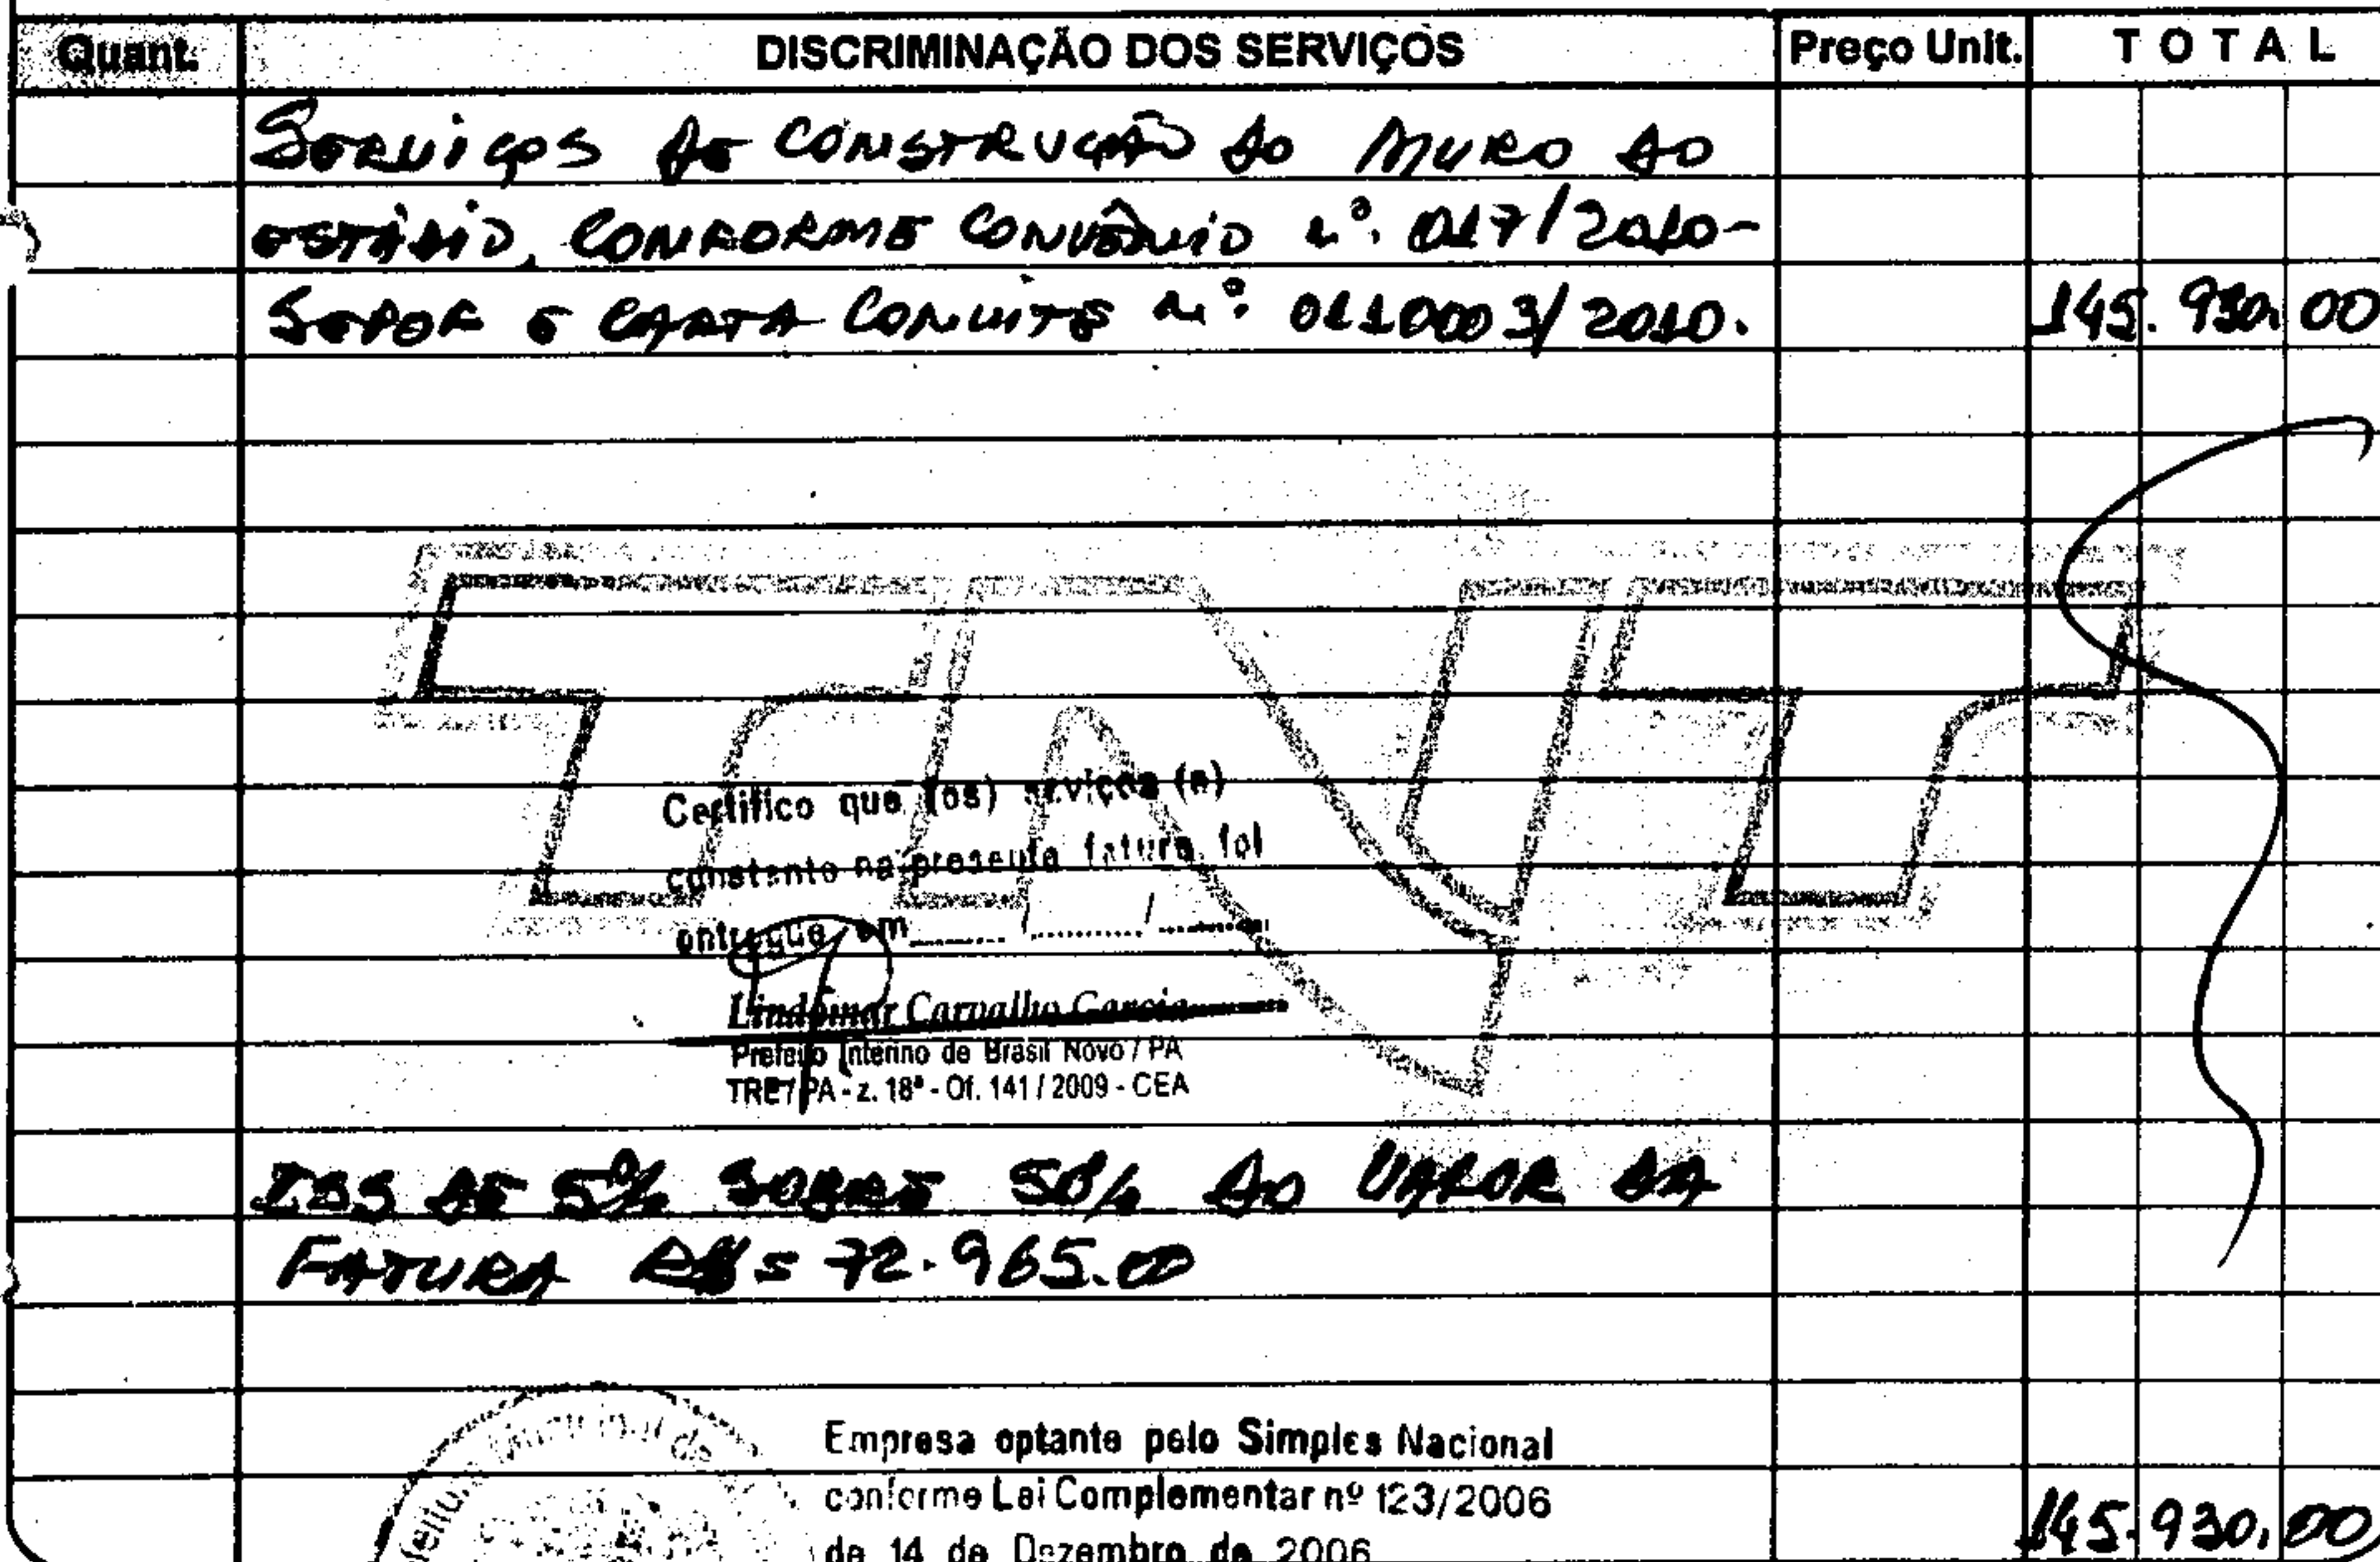 Quant. DISCRIMINAÇÃO DOS SERVIÇOS Preço Unit. TOTAL
SERVIÇOS DE CONSTRUÇÃO DO MURO DO
ESTÁDIO, CONFORME CONVÊNIO nº. 017/2010-
SEPOF E CARTA CONVITE nº. 0110003/2010. 145.930,00
Certifico que (os) serviços (a)
constante na presente fatura foi
entregue em ...... /........../ ..........
Lindomar Carvalho Garcia
Prefeito Interino de Brasil Novo / PA
TRE / PA - z. 18ª - Of. 141 / 2009 - CEA
ISS DE 5% SOBRE 50% DO VALOR DA
FATURA R$ = 72.965.00
Empresa optante pelo Simples Nacional
conforme Lei Complementar nº 123/2006
de 14 de Dezembro de 2006
145.930,00